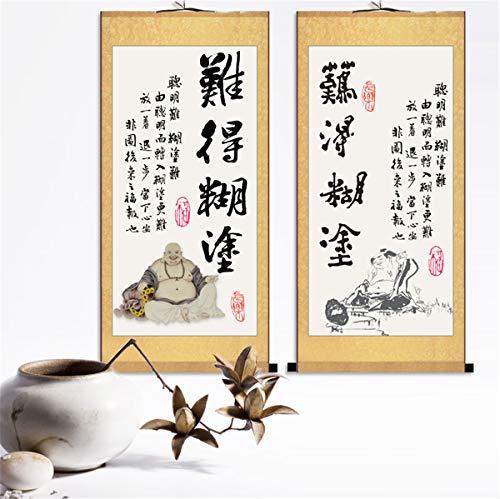 難得糊塗
聰明難 糊塗難
由聰明而轉入糊塗更難
放一着 退一步 當下心安
非圖後來之福報也
聰明難 糊塗難
由聰明而轉入糊塗更難
放一着 退一步 當下心安
非圖後來之福報也
難得糊塗